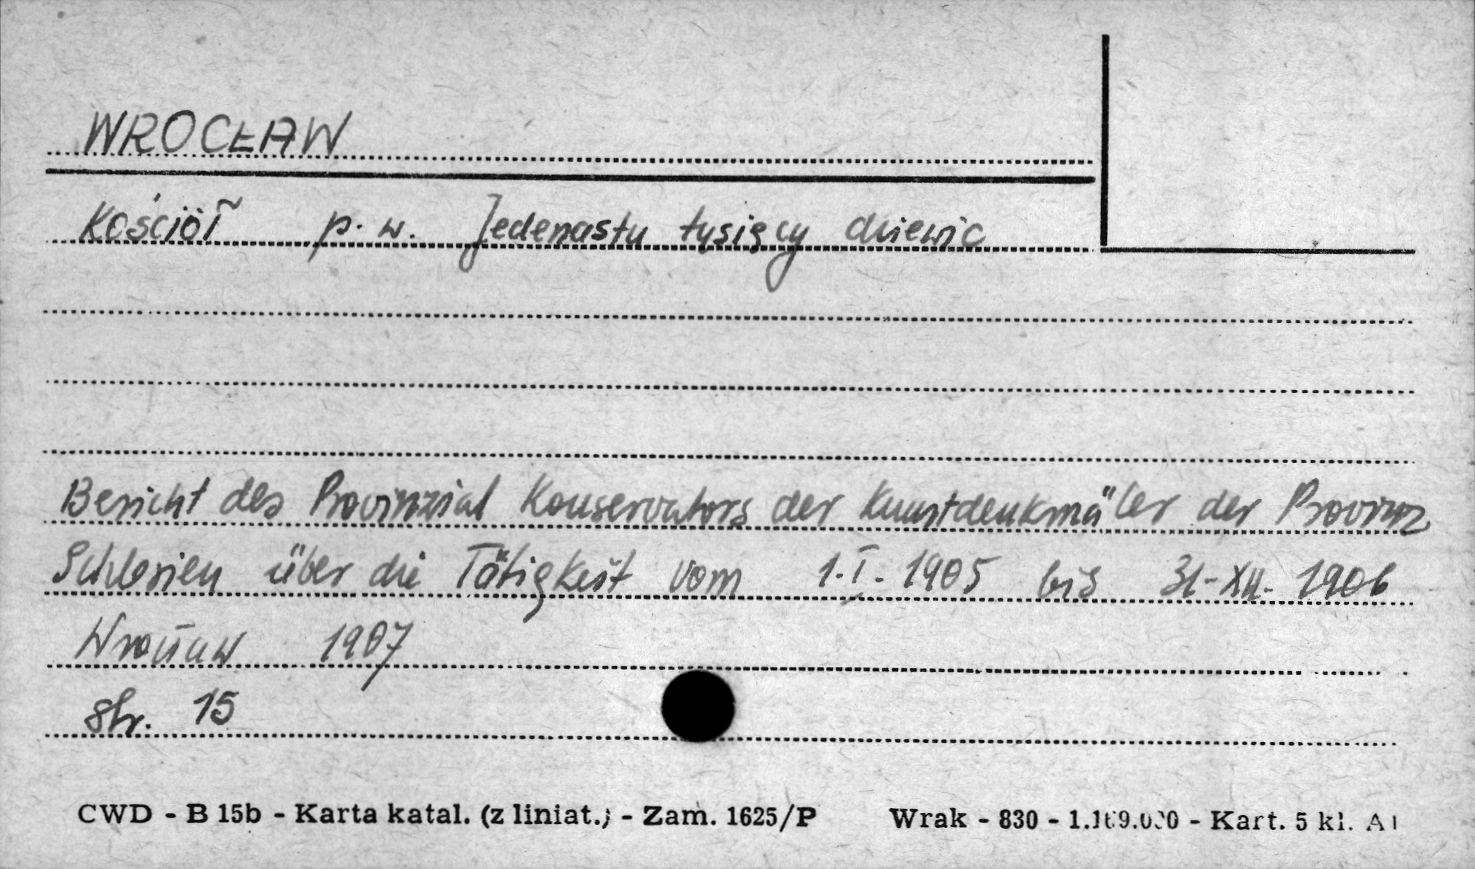 WROCŁAW
Kościół p.w. Jedenastu tysięcy dziewic
Bericht des Provinzial Konservators der Kunstdenkmäler der Provinz
Schlesien über die Tätigkeit vom 1.I.1905 bis 31-XII.1906
Wrocław 1907
str. 15
CWD - B 15b - Karta katal. (z liniat.) - Zam. 1625/P Wrak - 830 - - Kart. 5 kl. A1